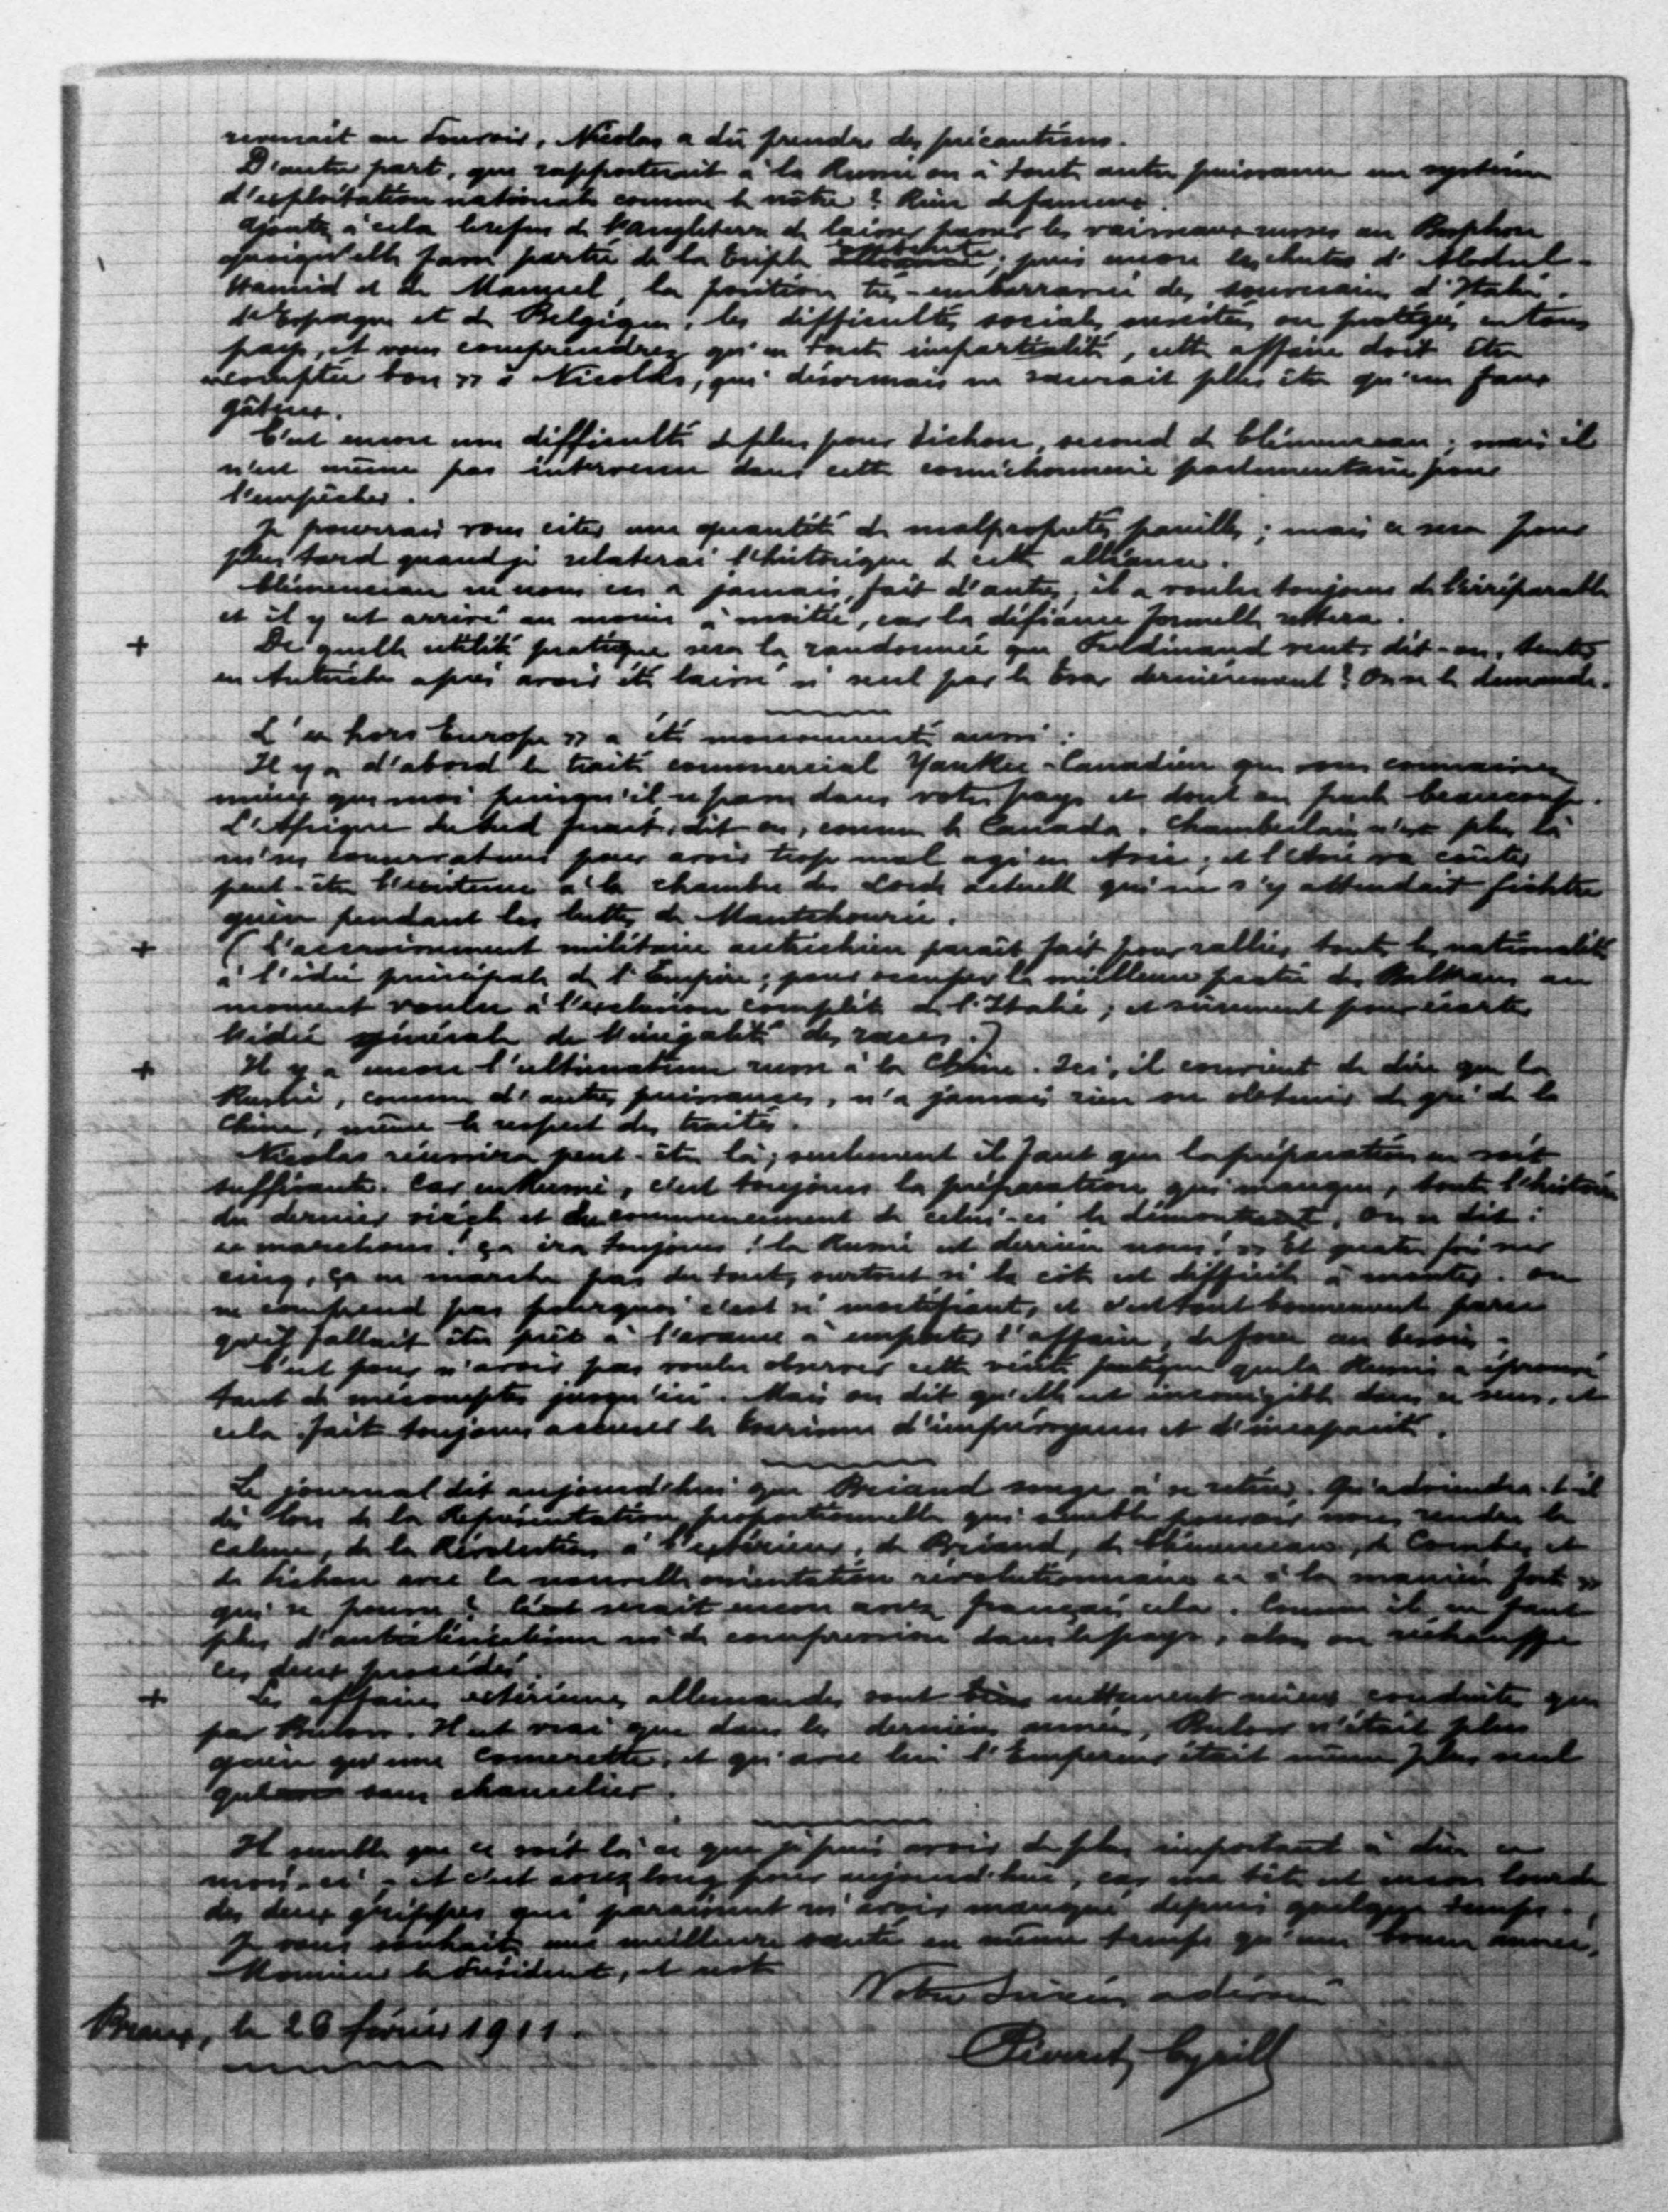 revenait au Pouvoir, Nicolas a dû prendre des précautions.
D'autre part, que rapporterait à la Russie ou à toute autre puissance un système
d'exploitation nationale comme le nôtre ? Rien de fameux.
Ajoutez à cela le refus de l'Angleterre de laisser passer les vaisseaux russes au Bosphore
quoiqu'elle fasse partie de la Triple entente ; puis encore les chutes d'Abdul-
Hamid et de Manuel, la position très-embarrassée des souverains d'Italie,
d'Espagne et de Belgique ; les difficultés sociales suscitées ou protégées en tous
pays, et vous comprendrez qu'en toute impartialité, cette affaire doit être
« comptée bon » à Nicolas, qui désormais ne saurait plus être qu'un faux
gâteux.
C'est encore une difficulté de plus pour Pichon, second de Clémenceau ; mais il
n'est même pas intervenu dans cette cornichonnerie parlementaire pour
l'empêcher.
Je pourrais vous citer une quantité de malpropretés pareilles ; mais ce sera pour
plus tard quand je relaterai l'historique de cette alliance.
Clémenceau ne nous en a jamais fait d'autres, il a voulu toujours de l'irréparable
et il y est arrivé au moins à moitié, car la défiance formelle restera.
+ De quelle utilité pratique sera la randonnée que Ferdinand veut, dit-on, tenter
en Autriche après avoir été laissé si seul par le Tsar dernièrement ? On se le demande.
L'« hors Europe » a été mouvementé aussi :
Il y a d'abord le traité commercial Yankee-Canadien que vous connaissez
mieux que moi puisqu'il se passe dans votre pays et dont on parle beaucoup.
L'Afrique du Sud ferait, dit on, comme le Canada. Chamberlain n'est plus là
ni ses conservateurs pour avoir trop mal agi en Asie ; et l'Asie va coûter
peut-être l'existence à la chambre des Lords actuelle qui ne s'y attendait fichtre
guère pendant les luttes de Mantchourie.
+ (L'accroissement militaire autrichien paraît fait pour rallier toutes les nationalités
à l'idée principale de l'Empire ; pour occuper la meilleure partie des Balkans au
moment voulu à l'exclusion complète de l'Italie ; et sûrement pour écarter
l'idée générale de l'inégalité des races.)
+ Il y a encore l'ultimatum russe à la Chine. Ici, il convient de dire que la
Russie, comme d'autres puissances, n'a jamais rien su obtenir de gré de la
Chine, même le respect des traités.
Nicolas réussira peut-être là ; seulement il faut que la préparation en soit
suffisante. Car en Russie, c'est toujours la préparation qui manque, toute l'histoire
du dernier siècle et du commencement de celui-ci le démontrent. On se dit :
« marchons ! ça ira toujours ! la Russie est derrière nous ! » Et quatre fois sur
cinq, ça ne marche pas du tout, surtout si la côte est difficile à monter. On
ne comprend pas pourquoi c'est si mortifiant, et c'est tout bonnement parce
qu'il fallait être prêt à l'avance à emporter l'affaire, de force au besoin.
C'est pour n'avoir pas voulu observer cette vérité pratique que la Russie a éprouvé
tant de mécomptes jusqu'ici. Mais on dit qu'elle est incorrigible dans ce sens, et
cela fait toujours accuser le tsarisme d'imprévoyance et d'incapacité.
Le journal dit aujourd'hui que Briand songe à se retirer. Qu'adviendra-t-il
dès lors de la Représentation proportionnelle qui semble pouvoir nous rendre le
calme, de la Révolution à l'extérieur, de Briand, de Clémenceau, de Combes et
de Pichon avec la nouvelle orientation révolutionnaire « à la manière forte »
qui se pousse ? Ce serait encore assez français cela. Comme il ne faut
plus d' ni de compression dans le pays, alors on réchauffe
ces deux procédés.
+ Les affaires extérieures allemandes sont nettement mieux conduites que
par Bulow. Il est vrai que dans les dernières années, Bulow n'était plus
guère qu'une , et qu'avec lui l'Empereur était même plus seul
que sans chancelier.
Il semble que ce soit là ce que je puis avoir de plus important à dire ce
mois-ci, et c'est assez long pour aujourd'hui, car ma tête est encore lourde
des deux grippes qui paraissent m'avoir manqué depuis quelque temps.
Je vous souhaite une meilleure santé en même temps qu'une bonne année,
Monsieur le Président, et reste
Votre sincère
Braux, le 26 février 1911.
Cyrille